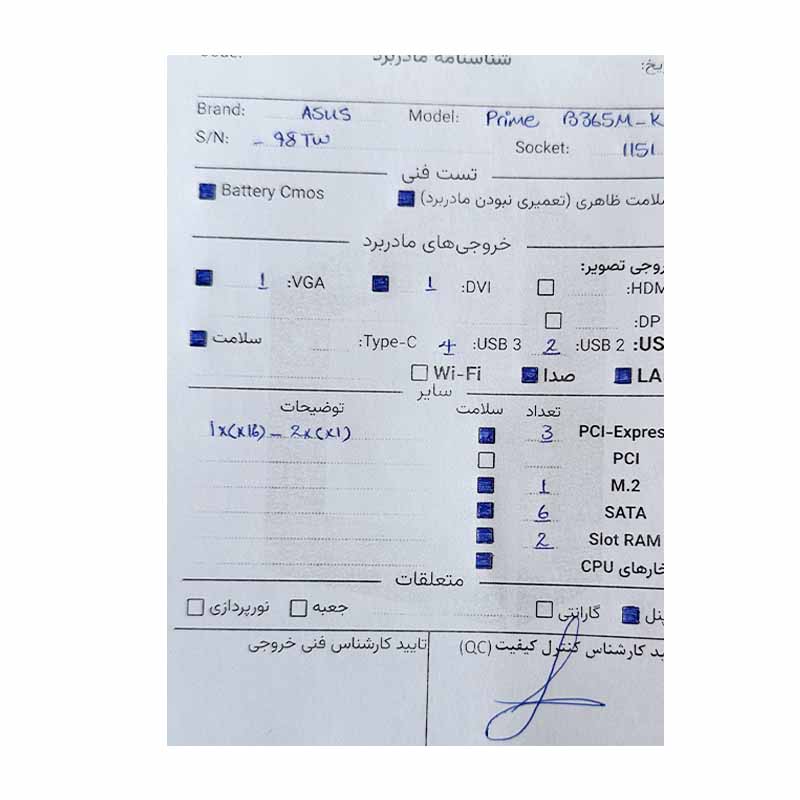 شناسنامه مادربرد
Brand: ASUS Model: Prime B365M-K
S/N: - 98TW Socket: 1151
تست فنی
Battery Cmos سلامت ظاهری (تعمیری نبودن مادربرد)
خروجی‌های مادربرد
خروجی تصویر:
1 :VGA 1 :DVI :HDM
:DP
سلامت :Type-C 4 :USB 3 2 :USB 2 :US
Wi-Fi صدا LA
سایر
توضیحات سلامت تعداد
1x(x16) - 2x(x1) 3 PCI-Expres
PCI
1 M.2
6 SATA
2 Slot RAM
خارهای CPU
متعلقات
نورپردازی جعبه گارانتی پنل
تایید کارشناس فنی خروجی تایید کارشناس کنترل کیفیت (QC)